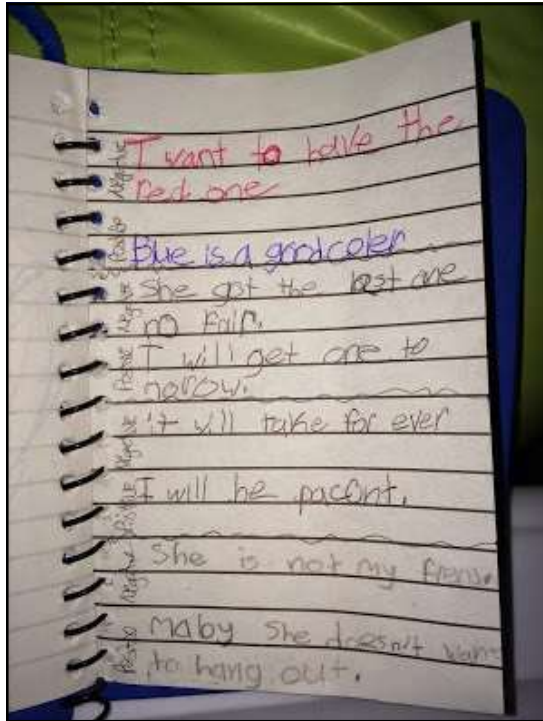 Negative I want to have the
red one
Positive Blue is a good coler
Negative She got the best one
no Fair.
Positive I will get one to
morow.
Negative it will take for ever
Positive I will be pacent.
Negative She is not my
Positive Maby She doesn't want
to hang out.